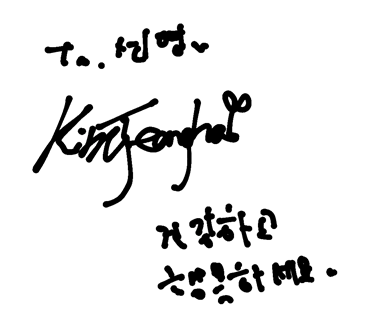 To. 신영.
KimJeonghai
건강하고
행복하세요.